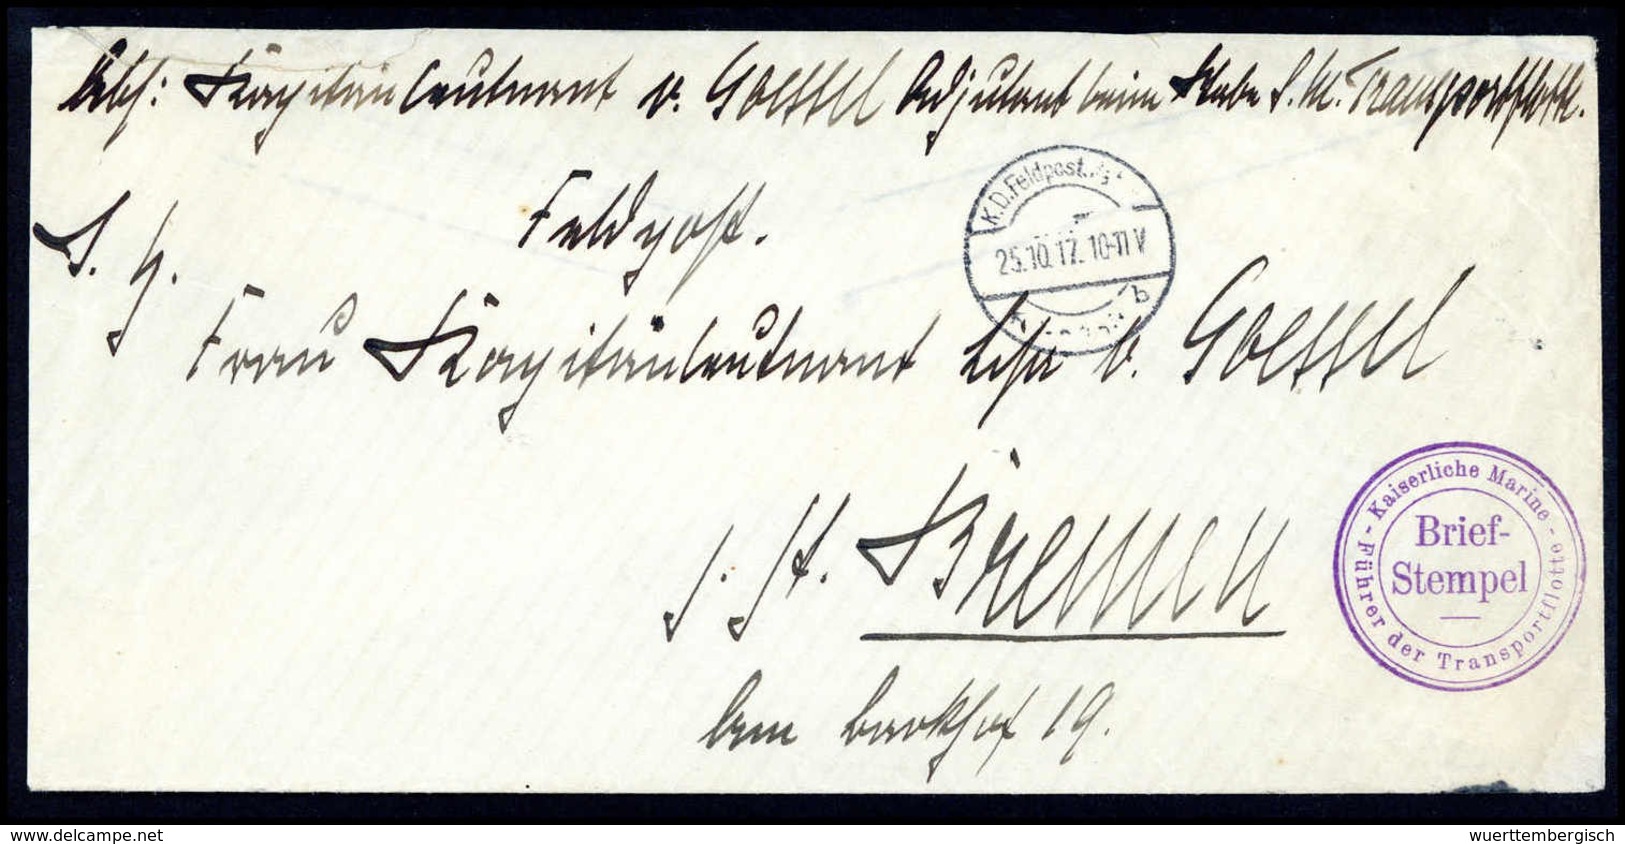 Abs: Kapitänleutnant v. Goessel Adjutant beim Stabe S. M. Transportflotte.
Feldpost.
K.D.Feldpost
25.10.17. 10-11 V
b
S. H.
Frau Kapitänleutnant v. Goessel
z. Zt. Bremen
Am 19.
- Kaiserliche Marine -
Brief-
Stempel
Führer der Transportflotte
www.delcampe.net
wuerttembergisch